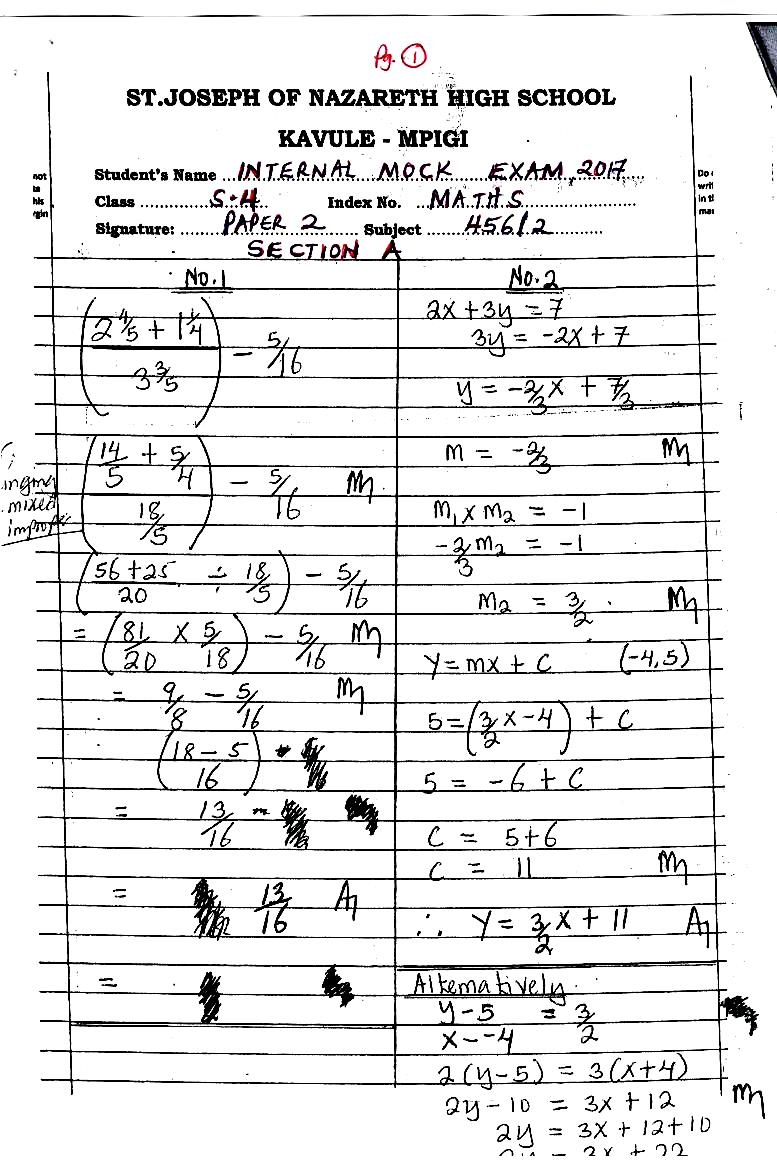 Pg. 1
ST.JOSEPH OF NAZARETH HIGH SCHOOL
KAVULE - MPIGI
Student's Name INTERNAL MOCK EXAM, 2017
Class S.4 Index No. MATHS
Signature: PAPER 2 Subject 456/2
SECTION A
not
his
rgin
Do
writ
in t
mar
No.1
(2 4/5 + 1 1/4 / 3 3/5) - 5/16
(14/5 + 5/4 / 18/5) - 5/16 M1
mixed
(56+25/20 ÷ 18/5) - 5/16
= (81/20 × 5/18) - 5/16 M1
= 9/8 - 5/16 M1
(18-5/16)
= 13/16
= 13/16 A1
=
No.2
2x + 3y = 7
3y = -2x + 7
y = -2/3 x + 7/3
m = -2/3 M1
m1 x m2 = -1
-2/3 m2 = -1
m2 = 3/2 . M1
y = mx + c (-4,5)
5 = (3/2 x -4) + c
5 = -6 + c
c = 5+6
c = 11 M1
∴ y = 3/2 x + 11 A1
Alternatively
y-5 / x--4 = 3/2
2(y-5) = 3(x+4)
2y-10 = 3x+12 M1
2y = 3x+12+10
2y = 3x + 22